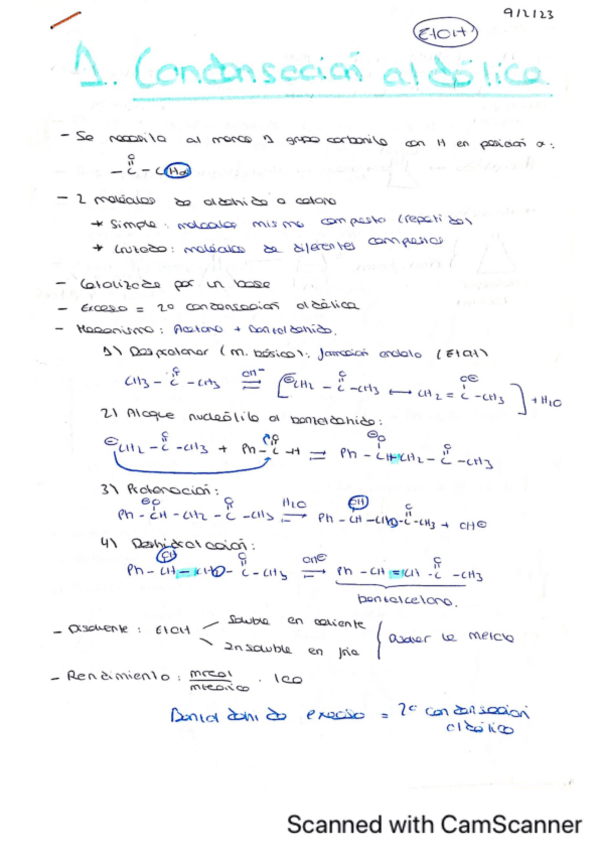 9/2/23
EtOH
1. Condensación aldólica
- Se necesita al menos 1 grupo carbonilo con H en posición α:
O
- C - C Hα
- 2 moléculas de aldehido o cetona
→ Simple: moléculas mismo compuesto (repetido)
→ Cruzada: moléculas de diferentes compuestos
- Catalizada por un base
- Exceso = 2º condensación aldólica
- Mecanismo: Acetona + Benzaldehido.
1) Desprotonar (m. básico): formación enolato (EtOH)
CH3 - C - CH3 ⇌ [ ⊖CH2 - C - CH3 ⟷ CH2 = C - CH3 ] + H2O
2) Ataque nucleófilo al benzaldehido:
⊖CH2 - C - CH3 + Ph - C - H ⇌ Ph - CH - CH2 - C - CH3
3) Protonación:
Ph - CH - CH2 - C - CH3 ⇌ Ph - CH - CH2 - C - CH3 + OH⊖
4) Deshidratación:
Ph - CH - CH2 - C - CH3 ⇌ Ph - CH = CH - C - CH3
benzalcetona.
- Disolvente: EtOH
Soluble en caliente
Insoluble en frío
la mezcla
- Rendimiento: mreal / mteórico · 100
Benzaldehido exceso = 2º condensación
aldólica
Scanned with CamScanner